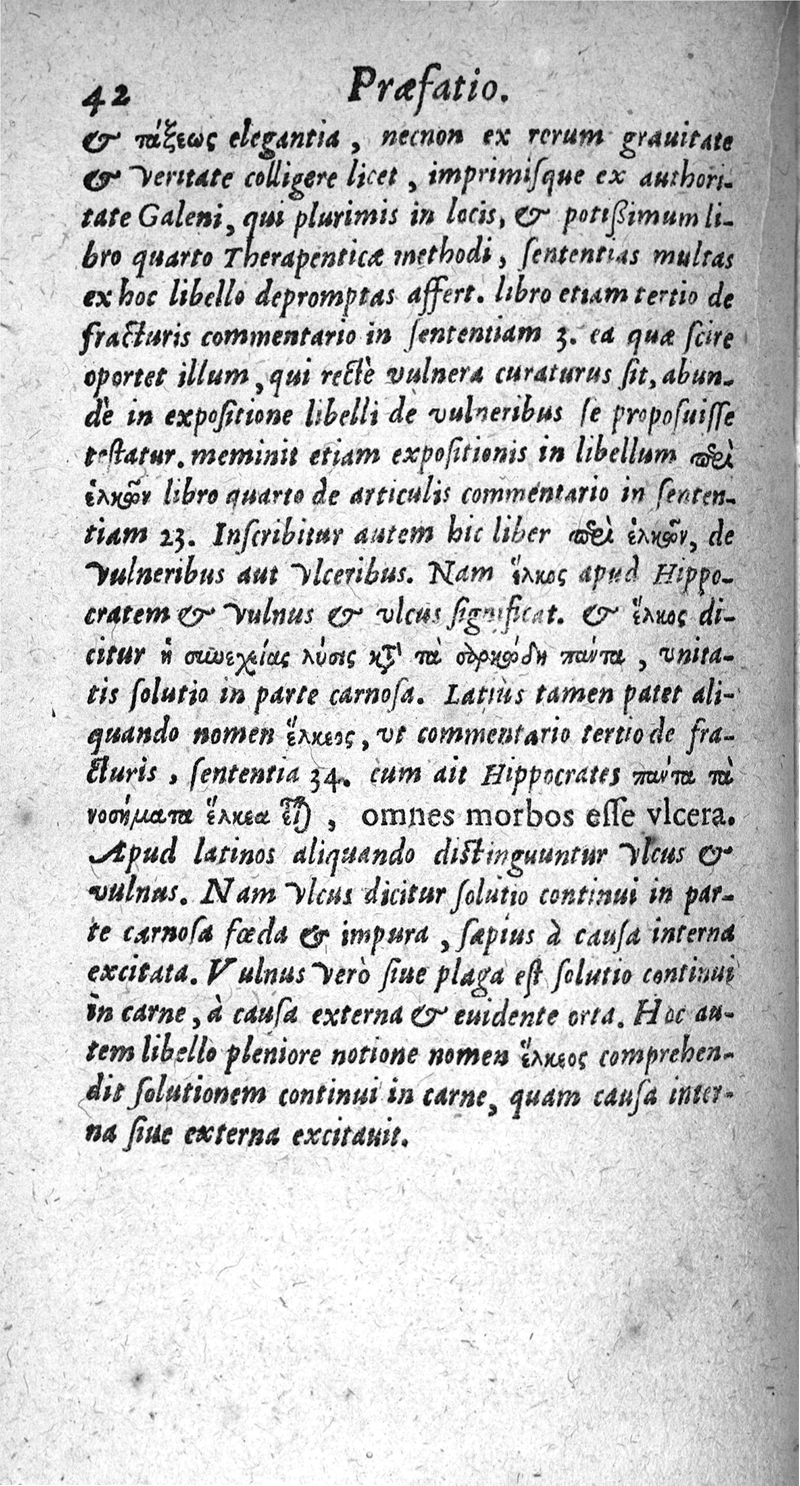 42 Præfatio.
& τάξεως elegantia, necnon ex rerum grauitate
& veritate colligere licet, imprimiſque ex authori-
tate Galeni, qui plurimis in locis, & potißimum li-
bro quarto Therapenticæ methodi, ſententias multas
ex hoc libello depromptas affert. libro etiam tertio de
fracturis commentario in ſententiam 3. ea quæ ſcire
oportet illum, qui rectè vulnera curaturus ſit, abun-
dè in expoſitione libelli de vulneribus ſe propoſuiſſe
teſtatur. meminit etiam expoſitionis in libellum περὶ
ἑλκῶν libro quarto de articulis commentario in ſenten-
tiam 23. Inſcribitur autem hic liber περὶ ἑλκῶν, de
vulneribus aut vlceribus. Nam ἕλκος apud Hippo-
cratem & vulnus & vlcus ſignificat. & ἕλκος di-
citur ἡ συνεχείας λύσις κατὰ τὰ σαρκώδη πάντα, vnita-
tis ſolutio in parte carnoſa. Latiùs tamen patet ali-
quando nomen ἕλκεος, vt commentario tertio de fra-
cturis, ſententia 34. cum ait Hippocrates πάντα τὰ
νοσήματα ἕλκεα εἶναι, omnes morbos eſſe vlcera.
Apud latinos aliquando diſtinguuntur vlcus &
vulnus. Nam vlcus dicitur ſolutio continui in par-
te carnoſa fœda & impura, ſæpius à cauſa interna
excitata. Vulnus verò ſiue plaga eſt ſolutio continui
in carne, à cauſa externa & euidente orta. Hoc au-
tem libello pleniore notione nomen ἕλκεος comprehen-
dit ſolutionem continui in carne, quam cauſa inter-
na ſiue externa excitauit.